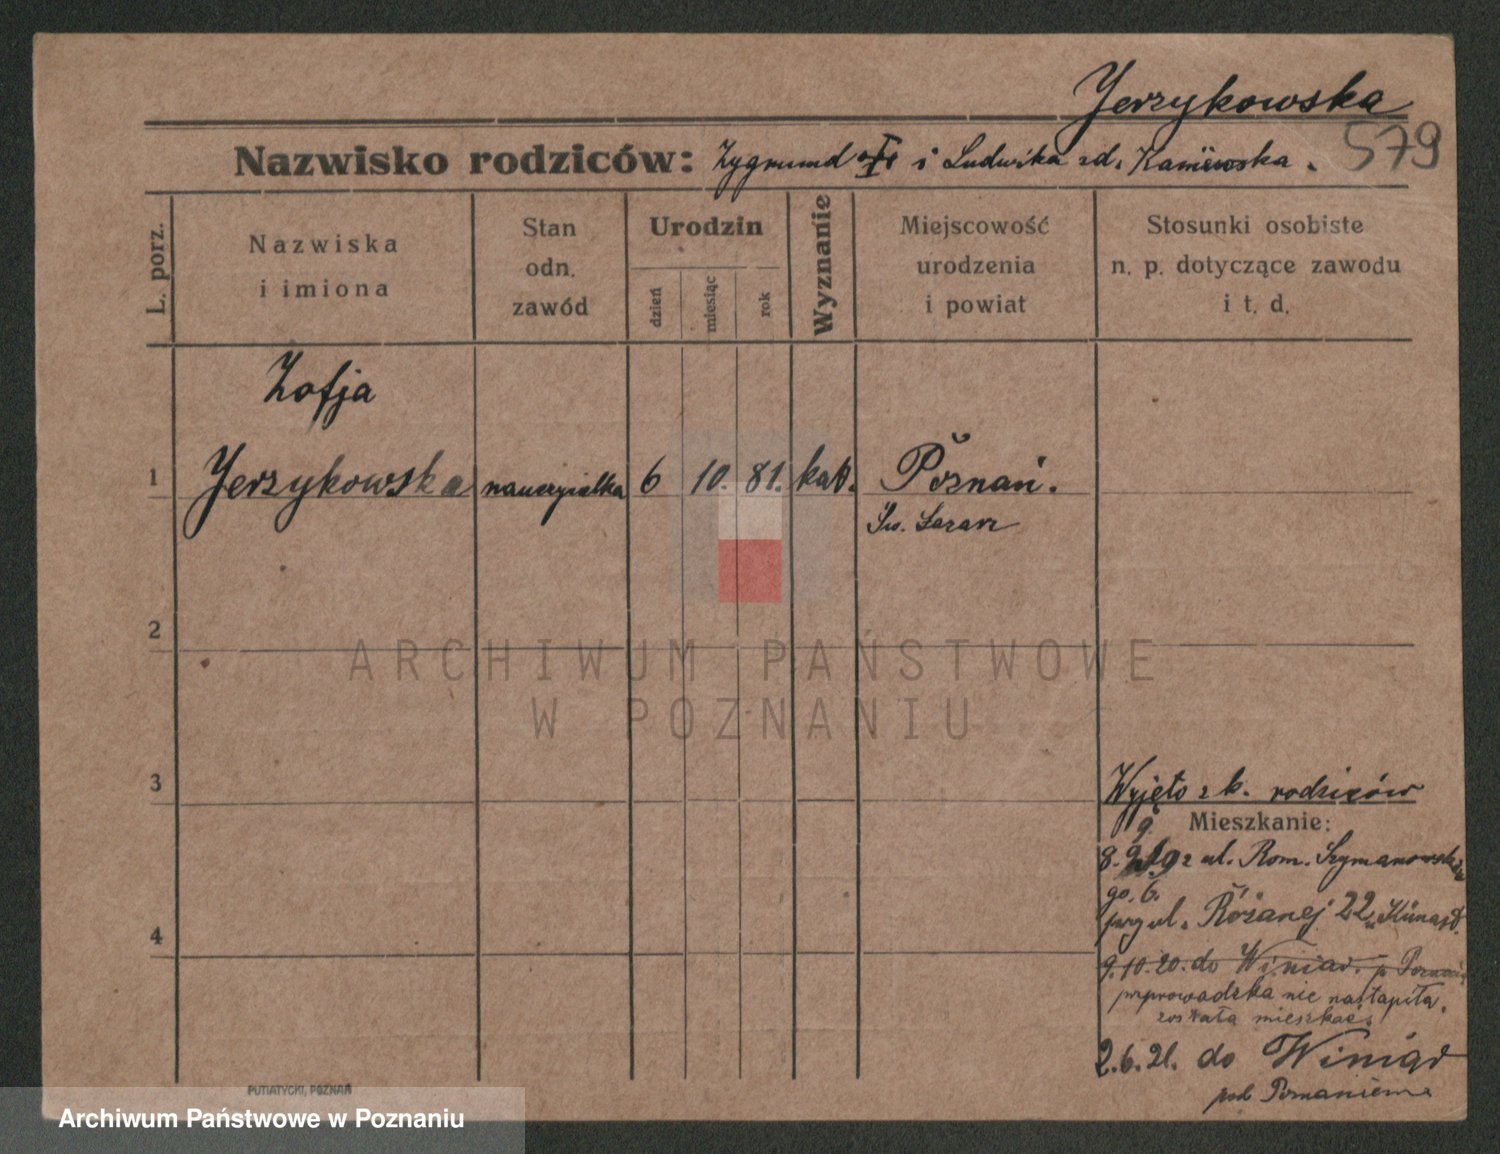 Jerzykowska
579
Nazwisko rodziców: Zygmund i Ludwika zd. Kaniewska.
L. porz.
Nazwiska
i imiona
Stan
odn.
zawód
Urodzin
dzień
miesiąc
rok
Wyznanie
Miejscowość
urodzenia
i powiat
Stosunki osobiste
n. p. dotyczące zawodu
i t. d.
Zofja
1 Jerzykowska nauczycielka 6 10. 81. kat. Poznań.
Św. Łazarz
2
3
4
Wyjęto z k. rodziców
Mieszkanie:
8. 9. 19 z ul. Rom. Szymanowski
go. 6.
przy ul. Różanej 22
9.10.20. do Winiar. p. Poznań
przprowadzka nie nastąpiła.
została mieszkać.
2.6.21. do Winiar
pod Poznaniem
PUTIATYCKI, POZNAŃ
ARCHIWUM PAŃSTWOWE
W POZNANIU
Archiwum Państwowe w Poznaniu